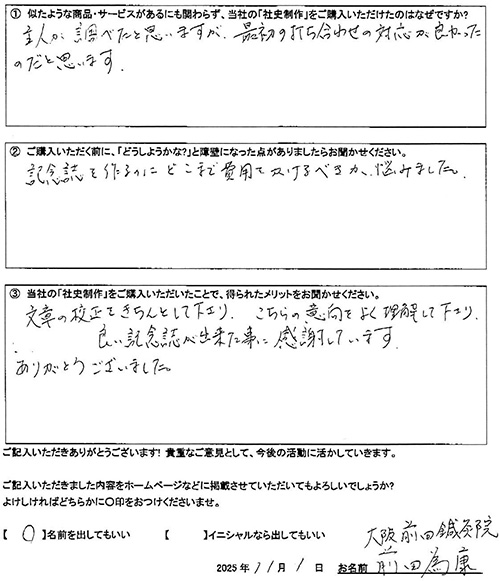 ① 似たような商品・サービスがあるにも関わらず、当社の「社史制作」をご購入いただけたのはなぜですか?
主人が調べたと思いますが、最初の打ち合わせの対応が良かった
のだと思います。
② ご購入いただく前に、「どうしようかな?」と障壁になった点がありましたらお聞かせください。
記念誌を作るのにどこまで費用をかけるべきか、悩みました。
③ 当社の「社史制作」をご購入いただいたことで、得られたメリットをお聞かせください。
文章の校正をきちんとして下さり、こちらの意向をよく理解して下さり、
良い記念誌が出来た事に感謝しています。
ありがとうございました。
ご記入いただきありがとうございます! 貴重なご意見として、今後の活動に活かしていきます。
ご記入いただきました内容をホームページなどに掲載させていただいてもよろしいでしょうか?
よけしければどちらかに○印をおつけくださいませ。
【 ○ 】名前を出してもいい 【 】イニシャルなら出してもいい 大阪前田鍼灸院
2025年 11月 1日 お名前 前田為康